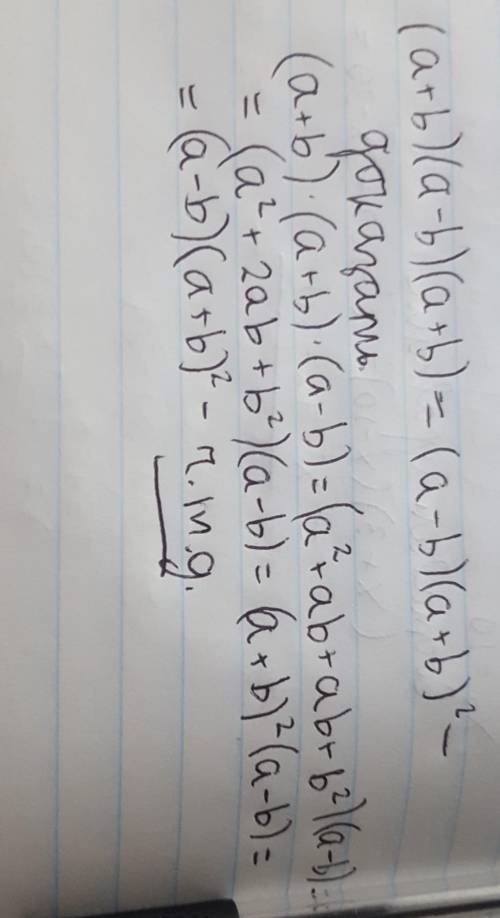 (a+b)(a-b)(a+b) = (a-b)(a+b)² –
доказать
(a+b)·(a+b)·(a-b) = (a²+ab+ab+b²)(a-b) =
= (a²+2ab+b²)(a-b) = (a+b)²(a-b) =
= (a-b)(a+b)² - ч.т.д.